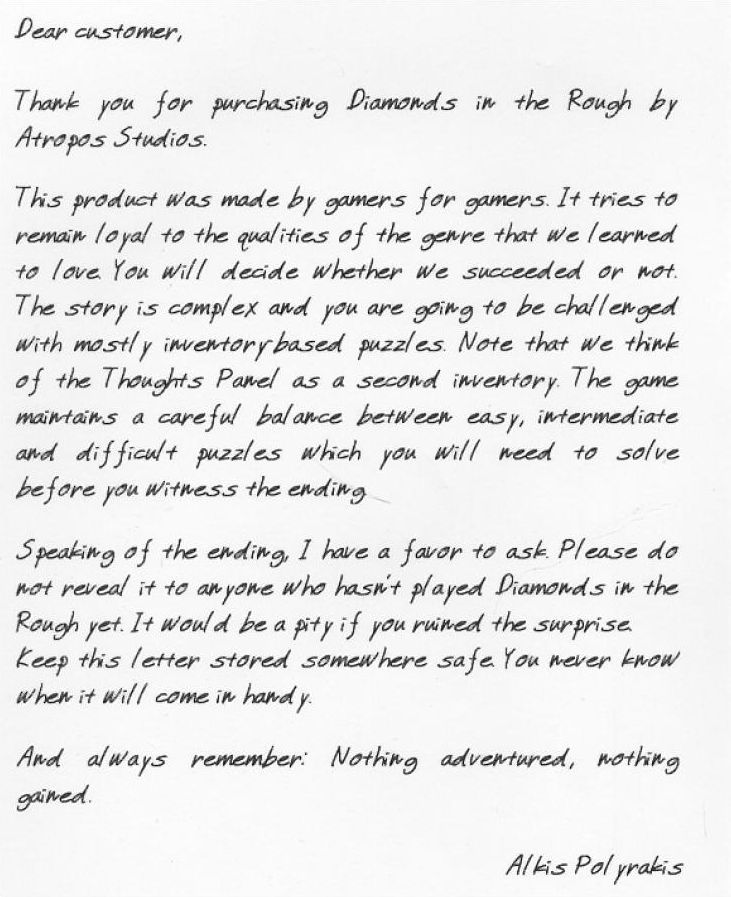 Dear customer,
Thank you for purchasing Diamonds in the Rough by
Atropos Studios.
This product was made by gamers for gamers. It tries to
remain loyal to the qualities of the genre that we learned
to love. You will decide whether we succeeded or not.
The story is complex and you are going to be challenged
with mostly inventory based puzzles. Note that we think
of the Thoughts Panel as a second inventory. The game
maintains a careful balance between easy, intermediate
and difficult puzzles which you will need to solve
before you witness the ending
Speaking of the ending, I have a favor to ask. Please do
not reveal it to anyone who hasn't played Diamonds in the
Rough yet. It would be a pity if you ruined the surprise.
Keep this letter stored somewhere safe. You never know
when it will come in handy.
And always remember: Nothing adventured, nothing
gained.
Alkis Polyrakis